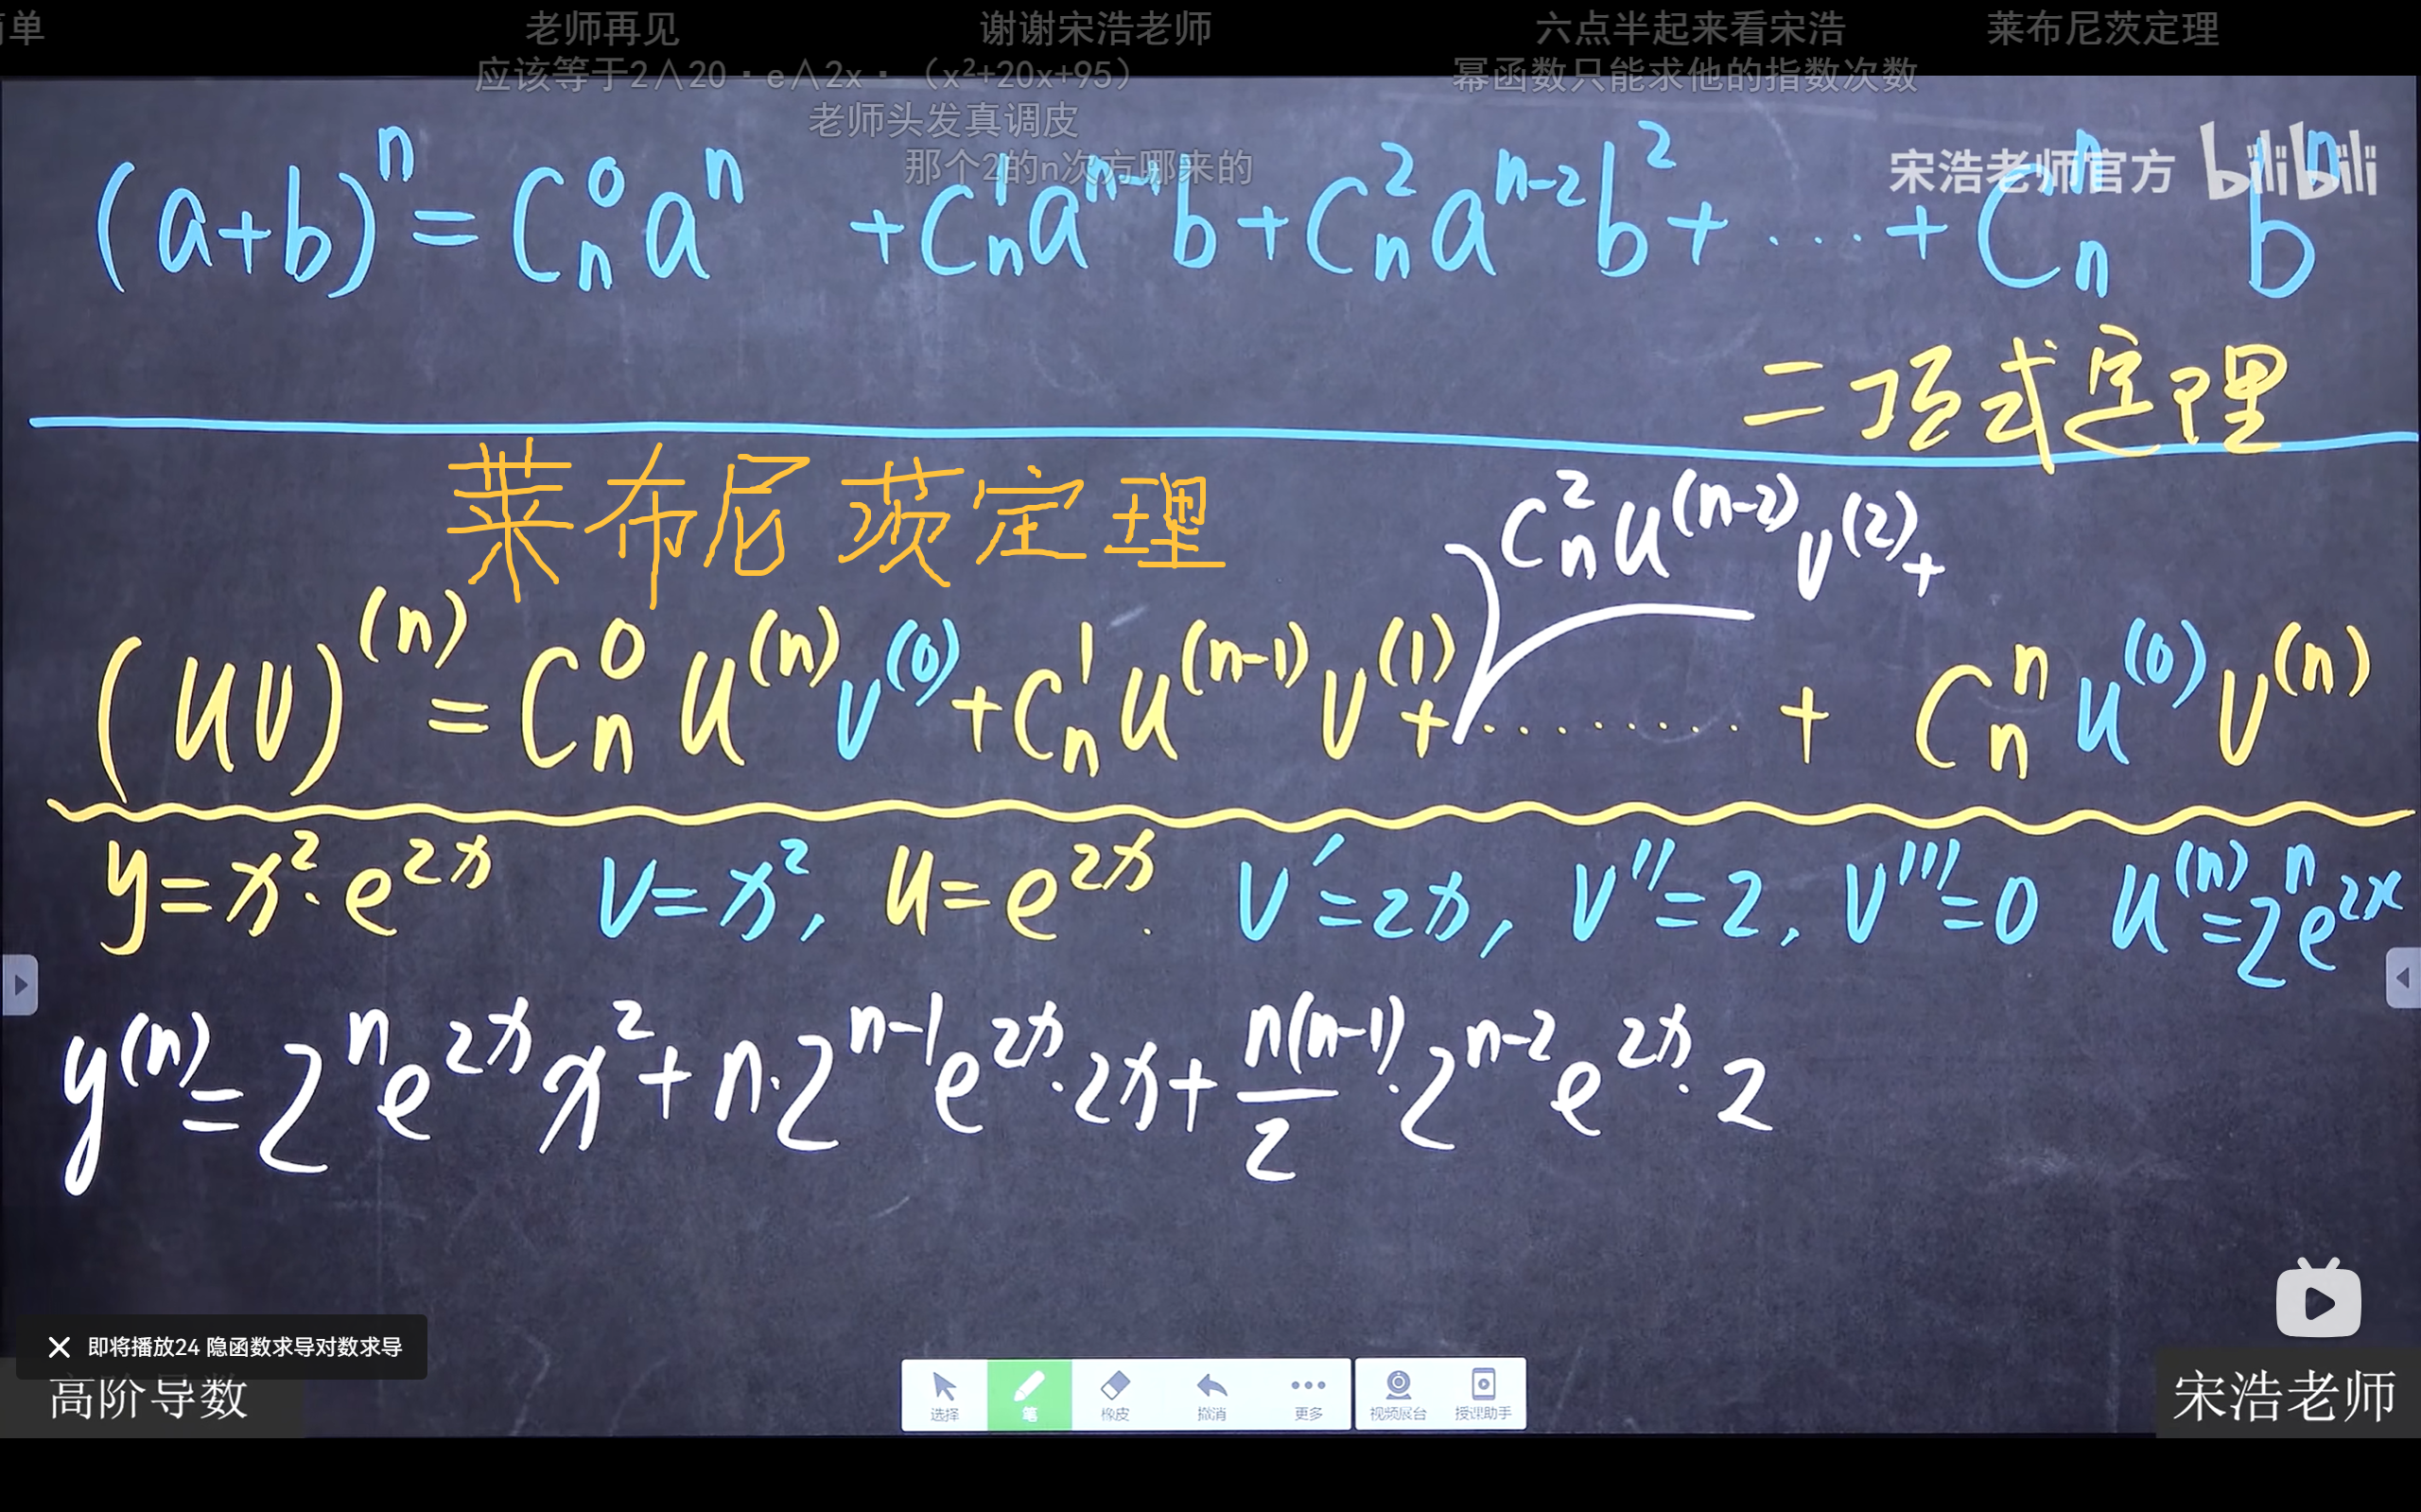 单
老师再见
谢谢宋浩老师
六点半起来看宋浩
莱布尼茨定理
应该等于2∧20·e∧2x·（x²+20x+95）
幂函数只能求他的指数次数
老师头发真调皮
那个2的n次方哪来的
宋浩老师官方 bilibili
(a+b)^n = C_n^0 a^n + C_n^1 a^{n-1} b + C_n^2 a^{n-2} b^2 + ··· + C_n^n b^n
二项式定理
莱布尼茨定理
C_n^2 u^{(n-2)} v^{(2)} +
(uv)^{(n)} = C_n^0 u^{(n)} v^{(0)} + C_n^1 u^{(n-1)} v^{(1)} + ········ + C_n^n u^{(0)} v^{(n)}
y = x^2 · e^{2x} v = x^2, u = e^{2x}. v' = 2x, v'' = 2, v''' = 0 u^{(n)} = 2^n e^{2x}
y^{(n)} = 2^n e^{2x} x^2 + n·2^{n-1} e^{2x}·2x + \frac{n(n-1)}{2}·2^{n-2} e^{2x}·2
即将播放24 隐函数求导对数求导
高阶导数
选择 笔 橡皮 撤消 更多 视频展台 授课助手
宋浩老师